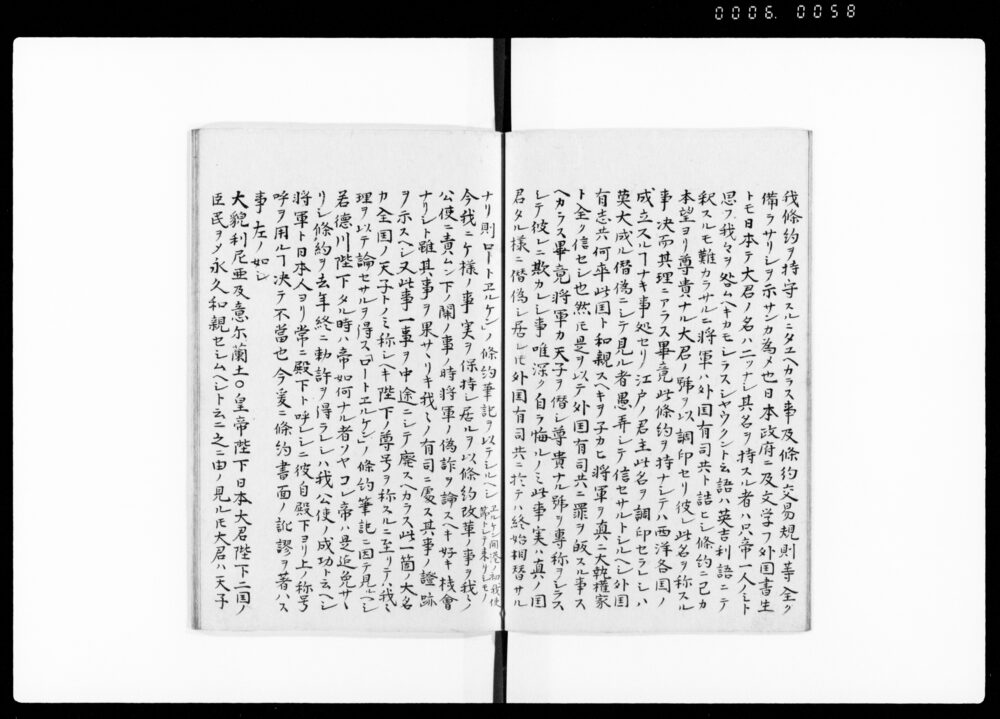 0006. 0058
我條約ヲ持守スルニタエヘカラス事及條約交易規則等全ク
備ラサリシヲ示サンカ為メ也日本政府ニ及文学フ外国書生
トモ日本テ大君ノ名ハ二ツナシ其名ヲ持スル者ハ只帝一人ノミト
思フ我々ヲ咎ムヘキカモシラスシヤウクント云語ハ英吉利語ニテ
釈スルモ難カラサルニ将軍ハ外国有司共ト詰ヒシ條約ニ己カ
本望ヨリ尊貴ナル大君ノ號ヲ以調印セリ彼レ此名ヲ称スル
事决而其理ニアラス畢竟此條約ヲ持ナシテハ西洋各国ノ
成立スルヿナキ事処セリ江戸ノ君主此名ヲ調印セラレシハ
英大成ル僭偽ニシテ見ル者愚弄シテ信セサルトシルヘシ外国
有志共何卒此国ト和親スヘキヲ子カヒ将軍ヲ真ニ大執権家
ト全ク信セシ也然ㇳモ是ヲ以テ外国有司共ニ罪ヲ皈スル事ス
ヘカラス畢竟将軍カ天子ヲ僭シ尊貴ナル號ヲ専称ヲシラス
シテ彼レニ欺カレシ事唯深ク自ラ悔ルノミ此事実ハ真ノ国
君タル様ニ僭偽シ居レㇳモ外国有司共ニ於テハ終始相替サル
ナリ則ロートエルケンノ條約筆記ヲ以テシルヘシ
エルケン開港ノ初我使節トシテ来リシモノ
今我ニケ様ノ事実ヲ保持シ居ルヲ以條約改革ノ事ヲ我々ノ
公使ニ責ムシ下ノ関ノ事ノ時将軍ノ偽詐ヲ論スヘキ好キ機會
ナリシト雖其事ヲ果サヽリキ我々ノ有司ニ處ス其事ノ證跡
ヲ示スヘシ又此事一事ヲ中途ニシテ廃スヘカラス此一箇ノ大名
カ全国ノ天子トノミ称シヘキ陛下ノ尊号ヲ称スルニ至リテハ我々
理ヲ以テ論セサルヲ得スロートエルケンノ條約筆記ニ因テ見ルヘシ
若德川陛下タル時ハ帝如何ナル者ソヤコレ帝ハ是迄免サヽ
リシ條約ヲ去年終ニ勅許ヲ得ラレシハ我公使ノ成功ト云ヘシ
将軍ト日本人ヨリ常ニ殿下ト呼レシニ彼自殿下ヨリ上ノ称号
呼ヲ用ルヿ决テ不當也今爰ニ條約書面ノ訛謬ヲ著ハス
事左ノ如シ
大貌利尼亜及意尓蘭土〇皇帝陛下日本大君陛下二国ノ
臣民ヲメ永久和親セシムヘシト云々之ニ由ノ見ルㇳモ大君ハ天子